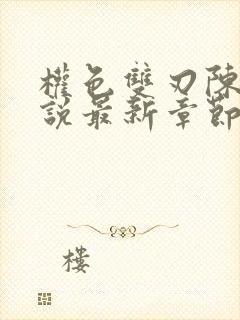 權色雙刃陳
說最新章節
樓